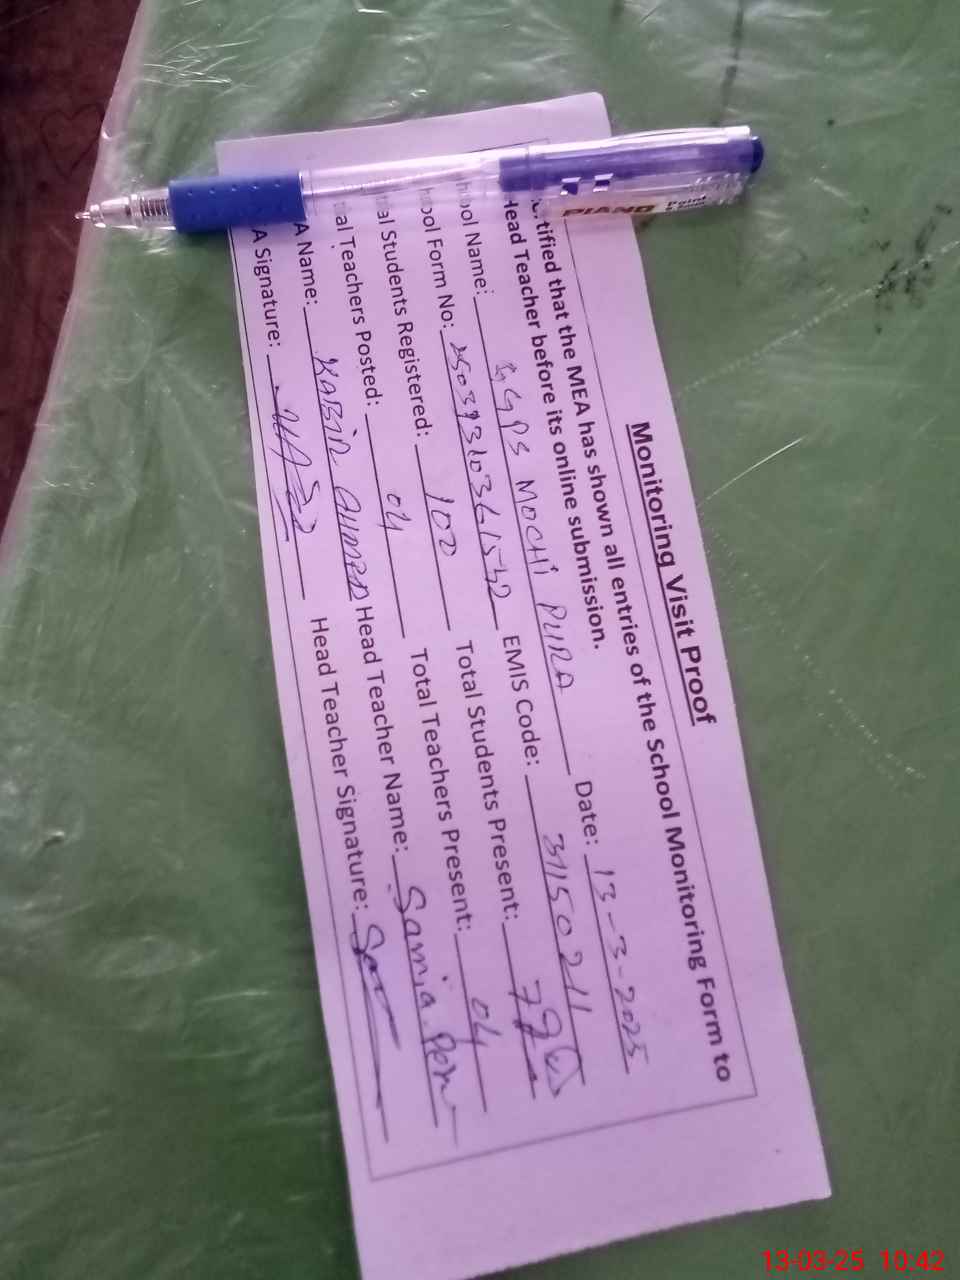 Monitoring Visit Proof
rtified that the MEA has shown all entries of the School Monitoring Form to
Head Teacher before its online submission.
hool Name: GGPS MOCHI PURA Date: 13-3-2025
hool Form No: EMIS Code: 31150211
tal Students Registered: 100 Total Students Present:
tal Teachers Posted: 04 Total Teachers Present: 04
A Name: KABIR AHMED Head Teacher Name: Samia
A Signature: Head Teacher Signature:
PIANO
13-03-25 10:42